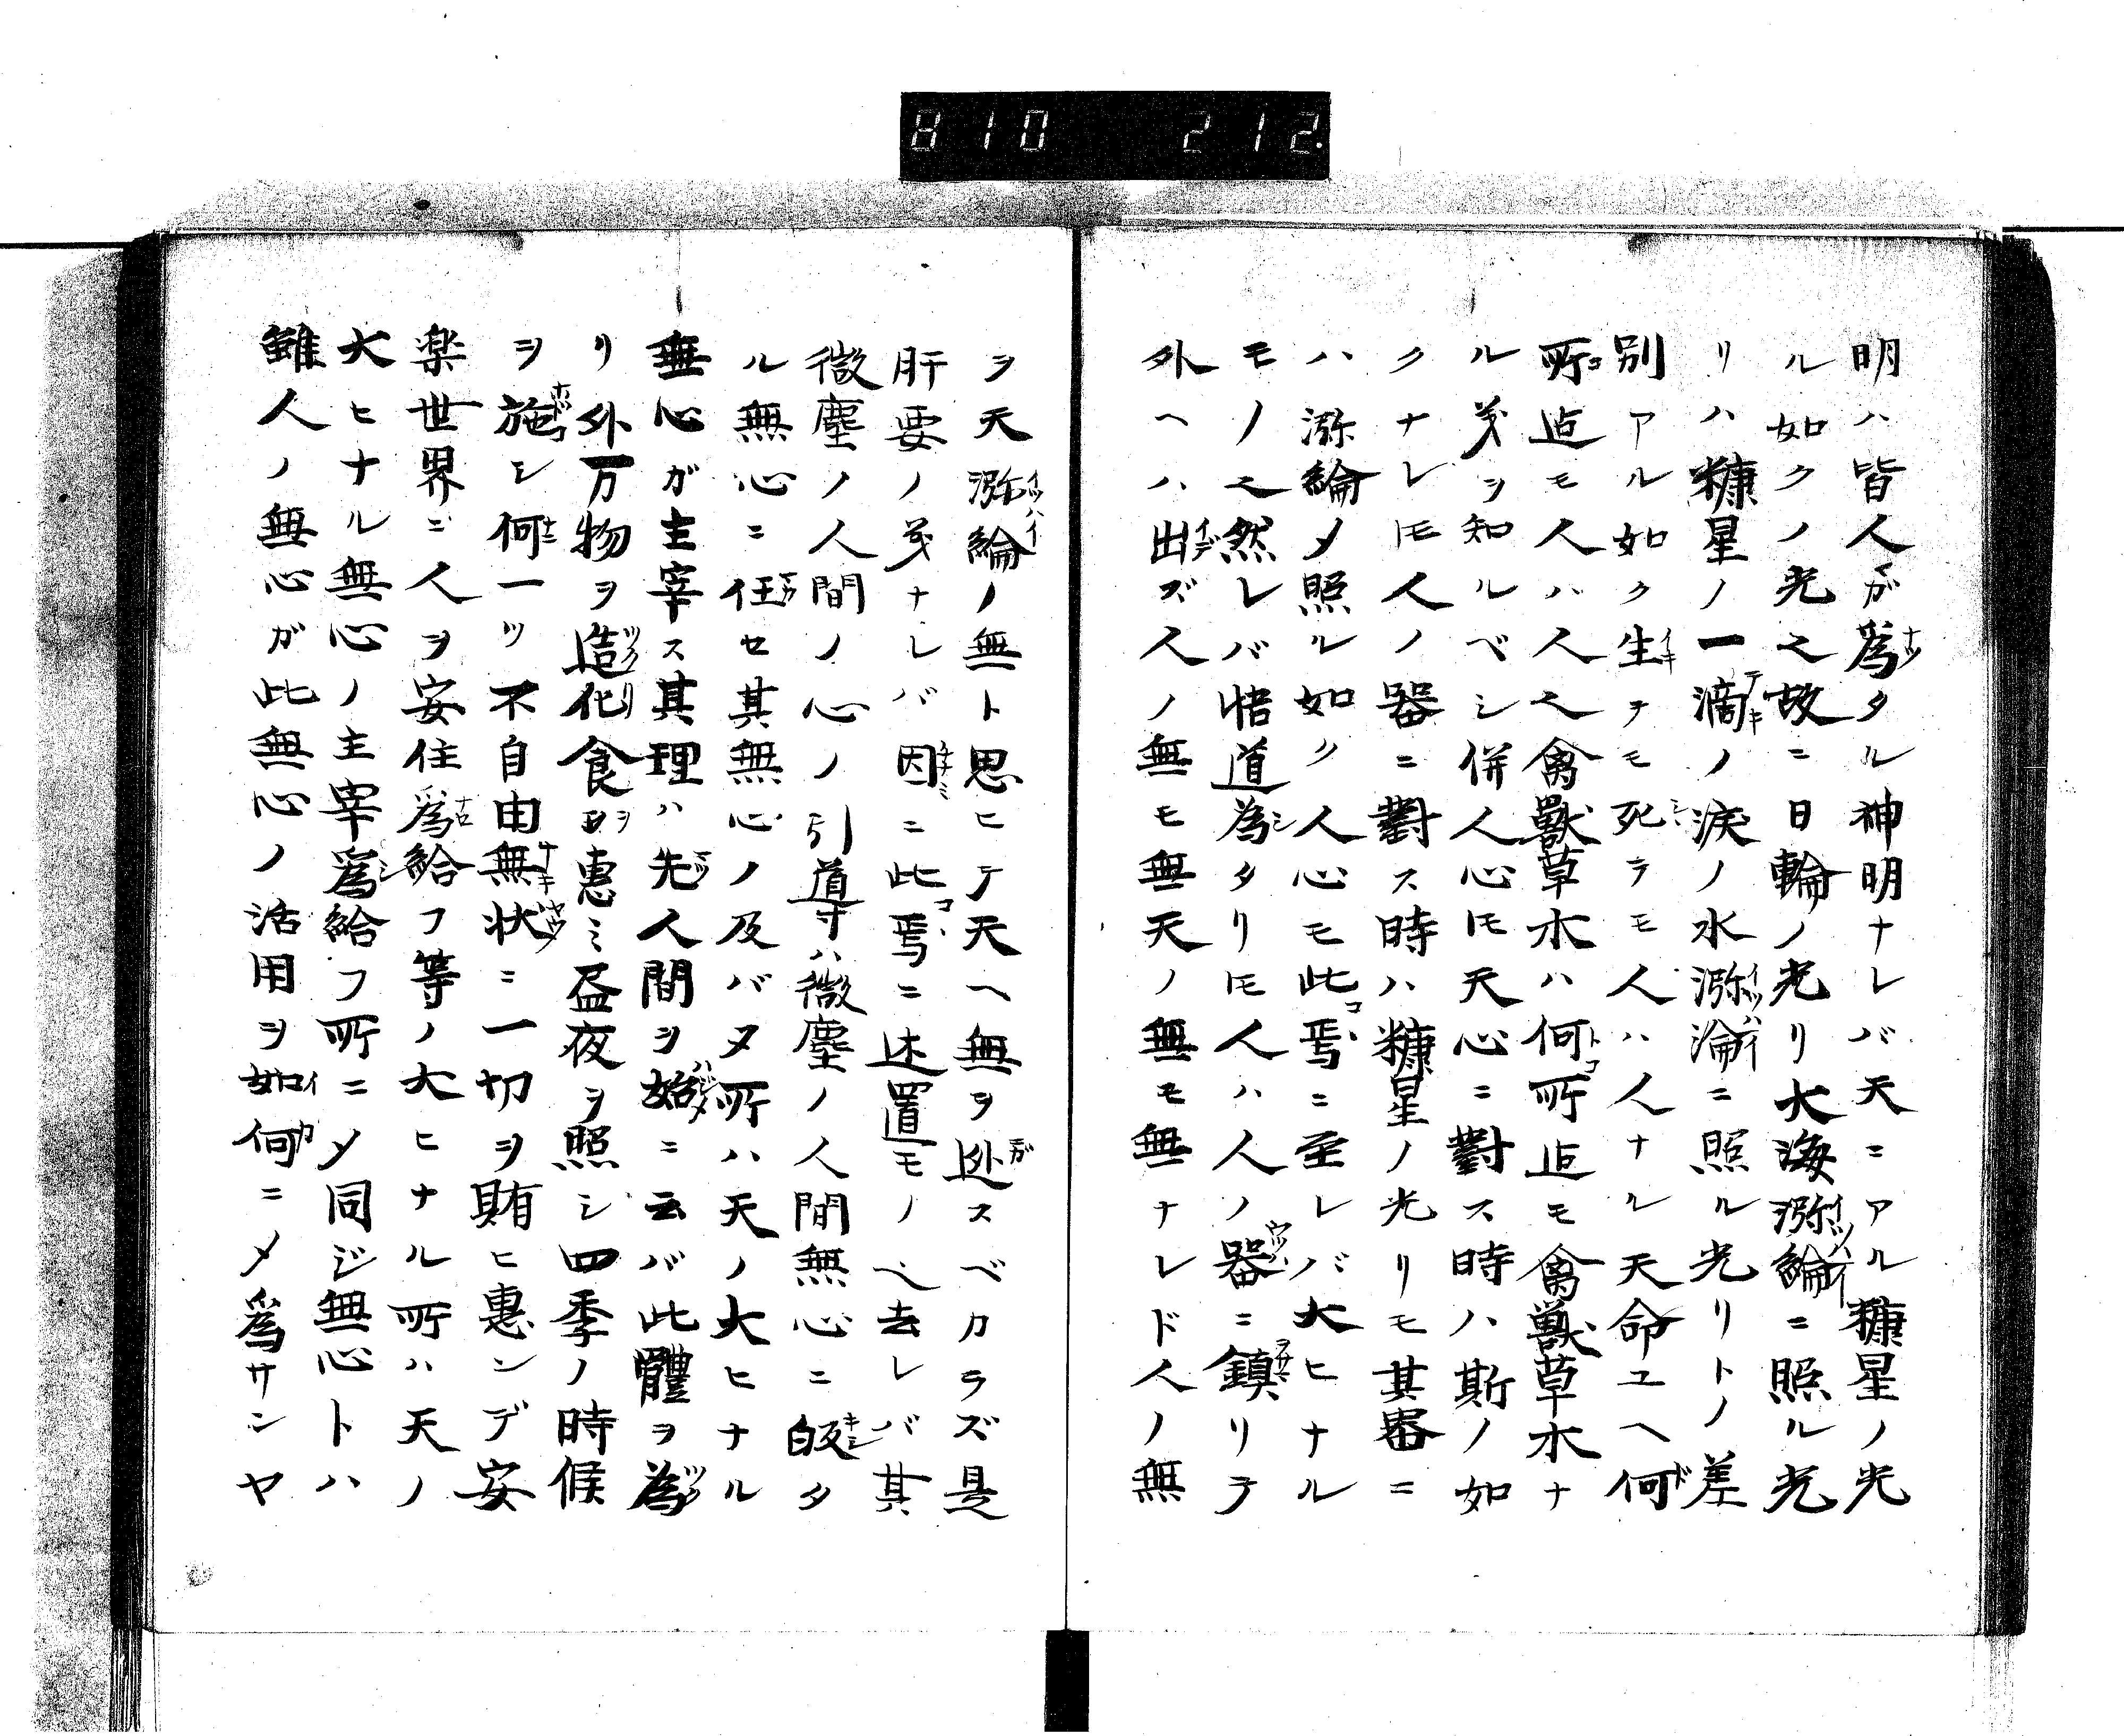 810 212.
明ハ皆人ガ爲タル神明ナレバ天ニアル糠星ノ光
ル如クノ光也故ニ日輪ノ光リ大海瀰綸ニ照ル光
リハ糠星ノ一滴ノ涙ノ水瀰淪ニ照ル光リトノ差
別アル如ク生テモ死テモ人ハ人ナル天命ユヘ何
所迠モ人ハ人也禽獸草木ハ何所迠モ禽獸草木ナ
ル㕝ヲ知ルベシ併人心𪜈天心ニ對ス時ハ斯ノ如
クナレ𪜈人ノ器ニ對ス時ハ糠星ノ光リモ其器ニ
ハ瀰綸〆照ル如ク人心モ此焉ニ至レバ大ヒナル
モノ也然レバ悟道為タリ𪜈人ハ人ノ器ニ鎮リテ
外ヘハ出ズ人ノ無モ無天ノ無モ無ナレド人ノ無
ヲ天瀰綸ノ無ト思ヒテ天ヘ無ヲ迯スベカラズ是
肝要ノ㕝ナレバ因ニ此焉ニ述置モノ也去レバ其
微塵ノ人間ノ心ノ引導ハ微塵ノ人間無心ニ皈タ
ル無心ニ任セ其無心ノ及バヌ所ハ天ノ大ヒナル
無心ガ主宰ス其理ハ先人間ヲ始ニ云バ此體ヲ為
リ外万物ヲ造化食ヲ惠ミ昼夜ヲ照シ四季ノ時候
ヲ施シ何一ツ不自由無状ニ一切ヲ賄ヒ惠ンデ安
楽世界ニ人ヲ安住爲給フ等ノ大ヒナル所ハ天ノ
大ヒナル無心ノ主宰爲給フ所ニ〆同ジ無心トハ
雖人ノ無心ガ此無心ノ活用ヲ如何ニ〆爲サンヤ